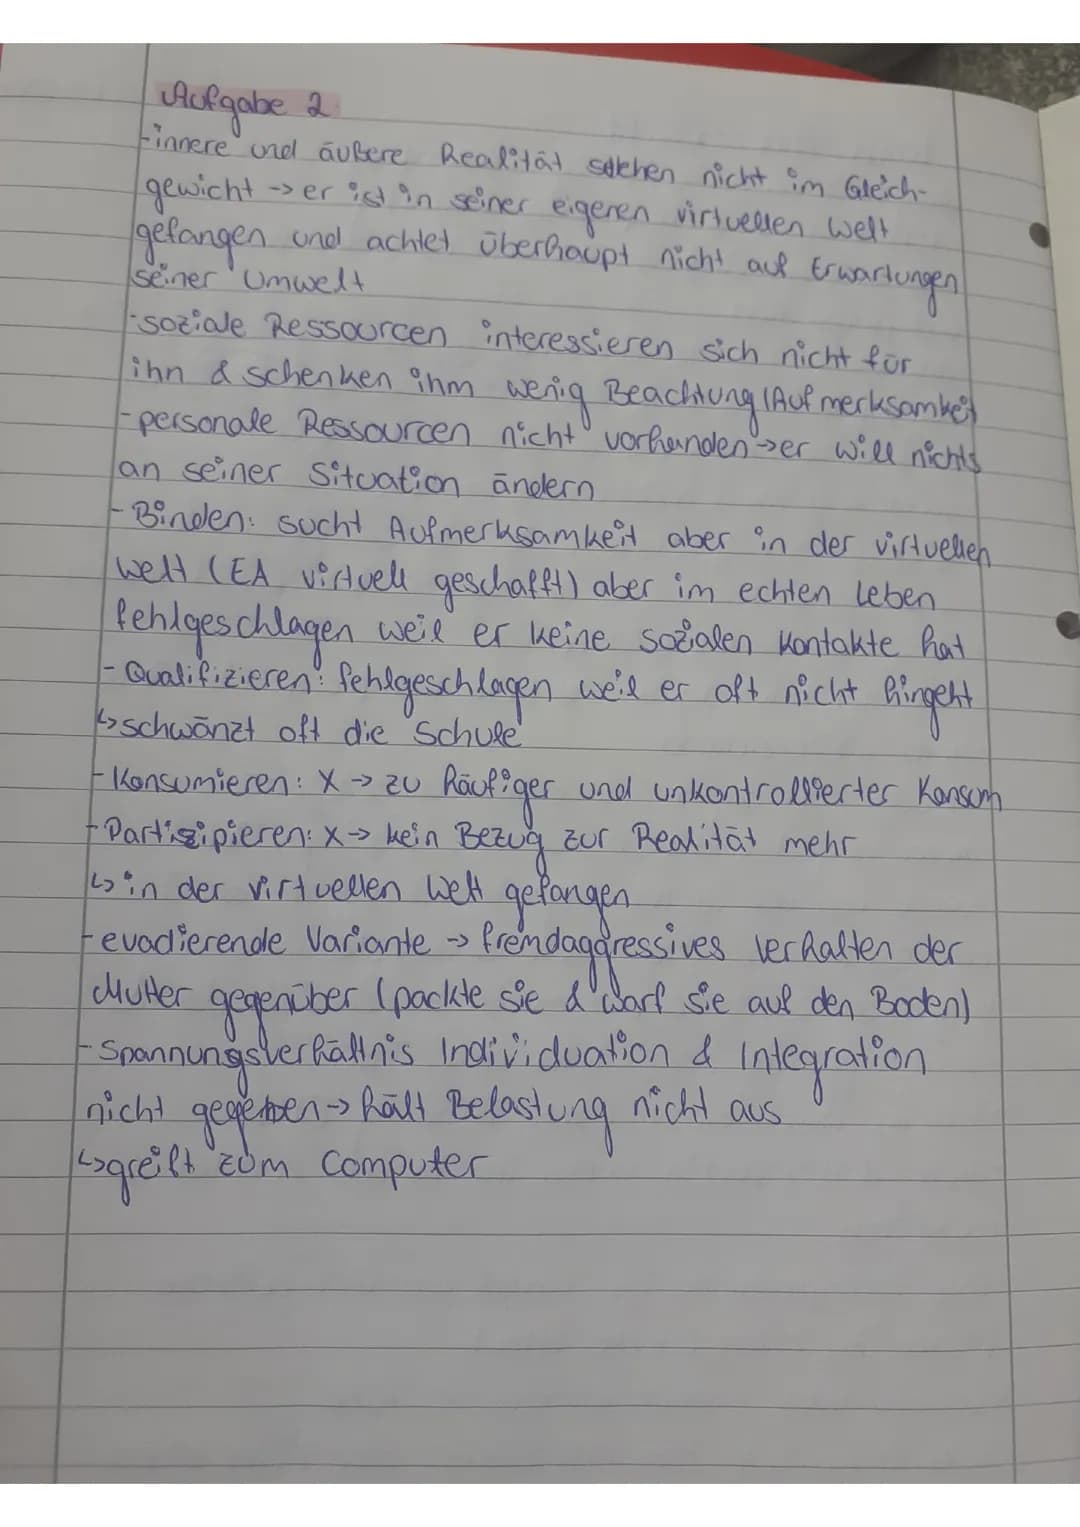 Aufgabe 2
-innere und äußere Realität stehen nicht im Gleich-
gewicht -> er ist in seiner eigenen virtuellen Welt
gefangen und achtet überhaupt nicht auf Erwartungen
seiner Umwelt
-soziale Ressourcen interessieren sich nicht für
ihn & schenken ihm wenig Beachtung/Aufmerksamkeit
-personale Ressourcen nicht vorhanden->er will nichts
an seiner Situation ändern
-Binden: sucht Aufmerksamkeit aber in der virtuellen
Welt (EA virtuell geschafft) aber im echten Leben
fehlgeschlagen weil er keine sozialen Kontakte hat
-Qualifizieren: fehlgeschlagen weil er oft nicht hingeht
↳schwänzt oft die Schule
-Konsumieren: X -> zu häufiger und unkontrollierter Konsum
-Partizipieren: X -> kein Bezug zur Realität mehr
↳in der virtuellen Welt gefangen
-evadierende Variante -> fremdaggressives Verhalten der
Mutter gegenüber (packte sie & warf sie auf den Boden)
-Spannungsverhältnis Individuation & Integration
nicht gegeben -> hält Belastung nicht aus
↳greift zum Computer